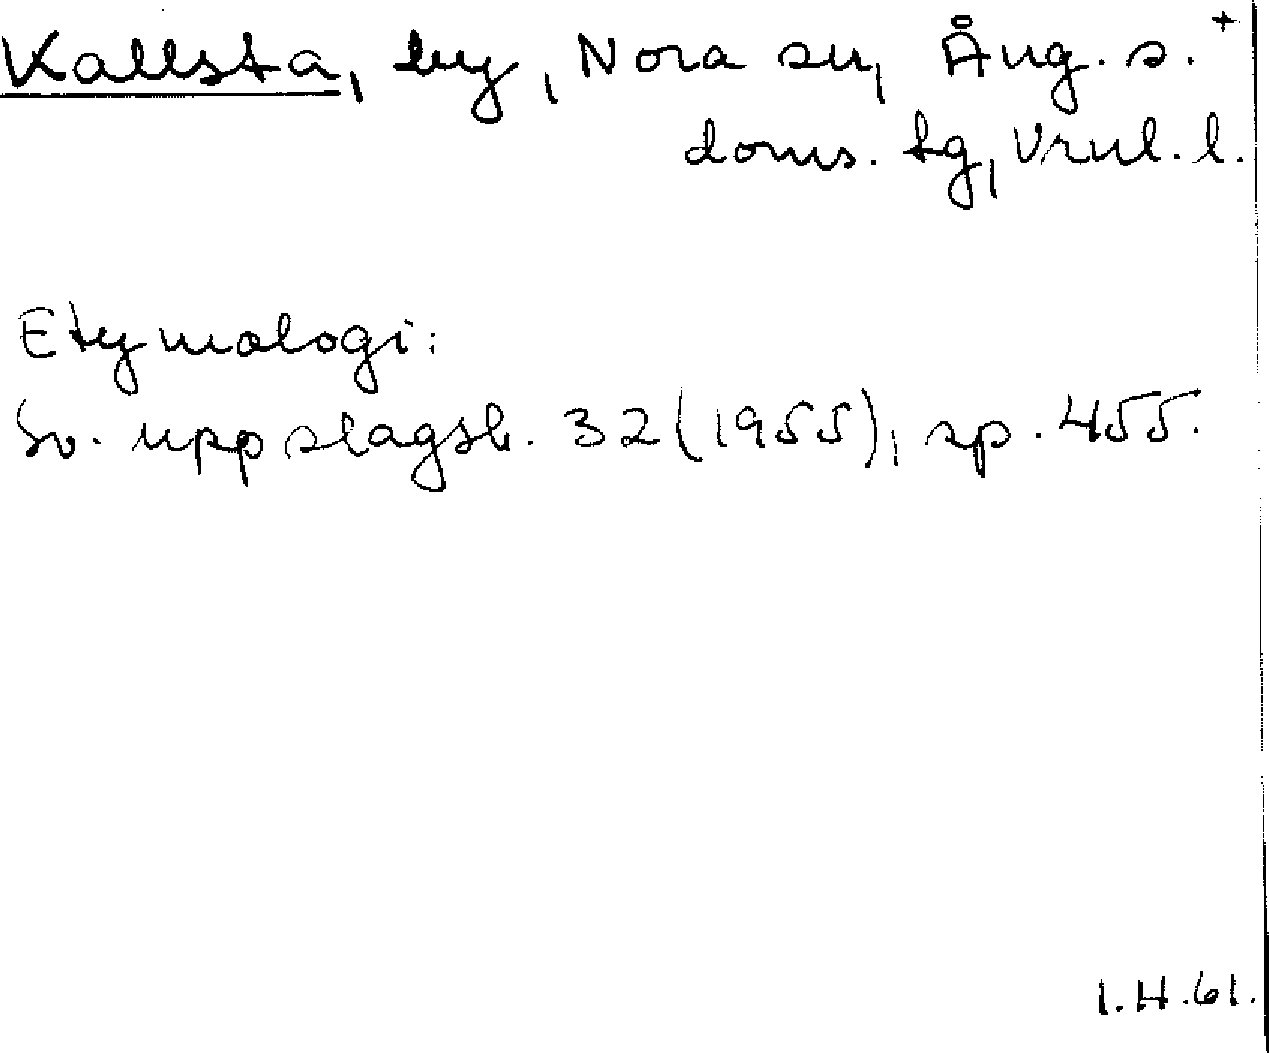 Kallsta, by, Nora sn, Ång. s. +
doms. tg, Vnl. l.
Etymologi:
Sv. uppslagsb. 32 (1955), sp. 455.
I.H.61.